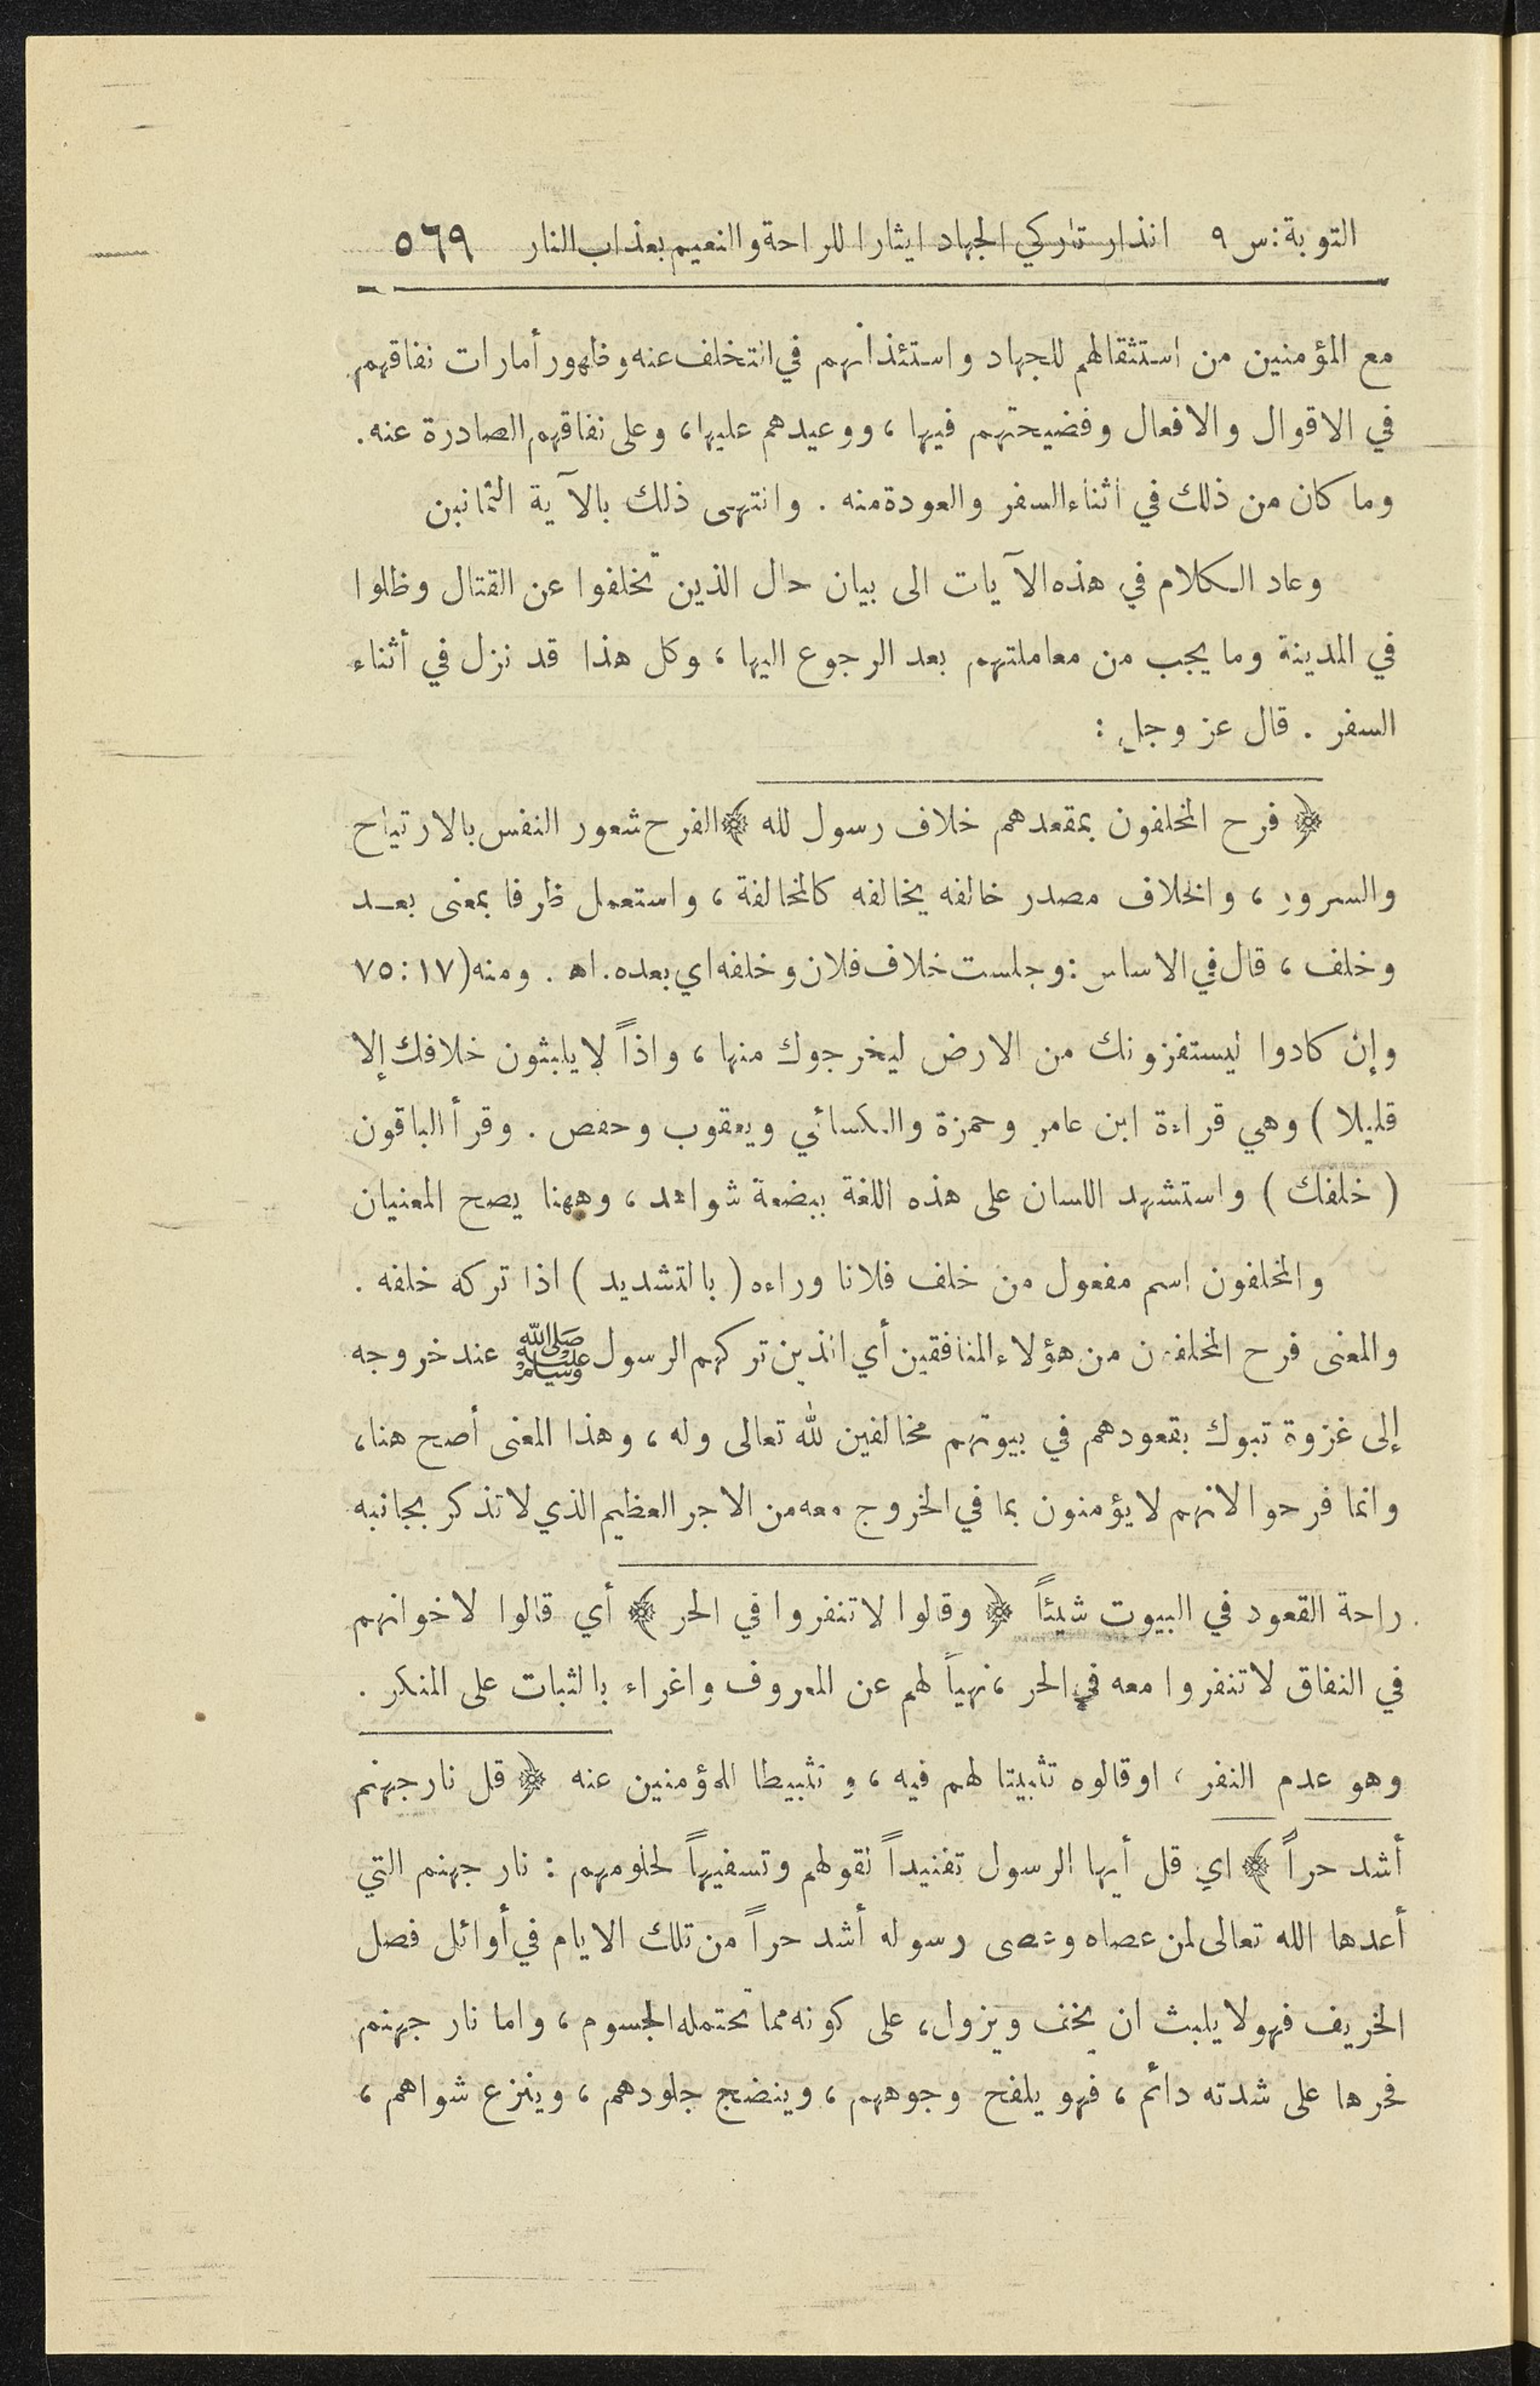 التوبة: س ٩ انذار تاركي الجهاد ايثارا للراحة والنعيم بعذاب النار ٥٦٩
مع المؤمنين من استثقالهم للجهاد واستئذانهم في التخلف عنه وظهور أمارات نفاقهم
في الاقوال والافعال وفضيحتهم فيها ، ووعيدهم عليها، وعلى نفاقهم الصادرة عنه.
وما كان من ذلك في أثناء السفر والعودة منه . وانتهى ذلك بالآية الثمانين
وعاد الكلام في هذه الآيات الى بيان حال الذين تخلفوا عن القتال وظلوا
في المدينة وما يجب من معاملتهم بعد الرجوع اليها ، وكل هذا قد نزل في أثناء
السفر . قال عز وجل :
﴿ فرح المخلفون بمقعدهم خلاف رسول لله ﴾ الفرح شعور النفس بالارتياح
والسرور ، والخلاف مصدر خالفه يخالفه كالمخالفة ، واستعمل ظرفا بمعنى بعد
وخلف ، قال في الاساس : وجلست خلاف فلان وخلفه اي بعده. اه . ومنه (١٧: ٧٥
وإن كادوا ليستفزونك من الارض ليخرجوك منها ، واذاً لا يلبثون خلافك إلا
قليلا ) وهي قراءة ابن عامر وحمزة والكسائي ويعقوب وحفص . وقرأ الباقون
( خلفك ) واستشهد اللسان على هذه اللغة ببضعة شواهد ، وههنا يصح المعنيان
والمخلفون اسم مفعول من خلف فلانا وراءه ( بالتشديد ) اذا تركه خلفه .
والمعنى فرح المخلفون من هؤلاء المنافقين أي الذين تركهم الرسول ﷺ عند خروجه
إلى غزوة تبوك بقعودهم في بيوتهم مخالفين لله تعالى وله ، وهذا المعنى أصح هنا،
وانما فرحوا لانهم لا يؤمنون بما في الخروج معه من الاجر العظيم الذي لا تذكر بجانبه
راحة القعود في البيوت شيئاً ﴿ وقالوا لا تنفروا في الحر ﴾ أي قالوا لاخوانهم
في النفاق لا تنفروا معه في الحر ، نهياً لهم عن المعروف واغراء بالثبات على المنكر .
وهو عدم النفر ، او قالوه تثبيتا لهم فيه ، و تثبيطا للمؤمنين عنه ﴿ قل نار جهنم
أشد حراً ﴾ اي قل أيها الرسول تفنيداً لقولهم وتسفيهاً لحلومهم : نار جهنم التي
أعدها الله تعالى لمن عصاه وعصى رسوله أشد حراً من تلك الايام في أوائل فصل
الخريف فهو لا يلبث ان يخف ويزول، على كونه مما تحتمله الجسوم ، واما نار جهنم
فحرها على شدته دائم ، فهو يلفح وجوههم ، وينضج جلودهم ، وينزع شواهم ،